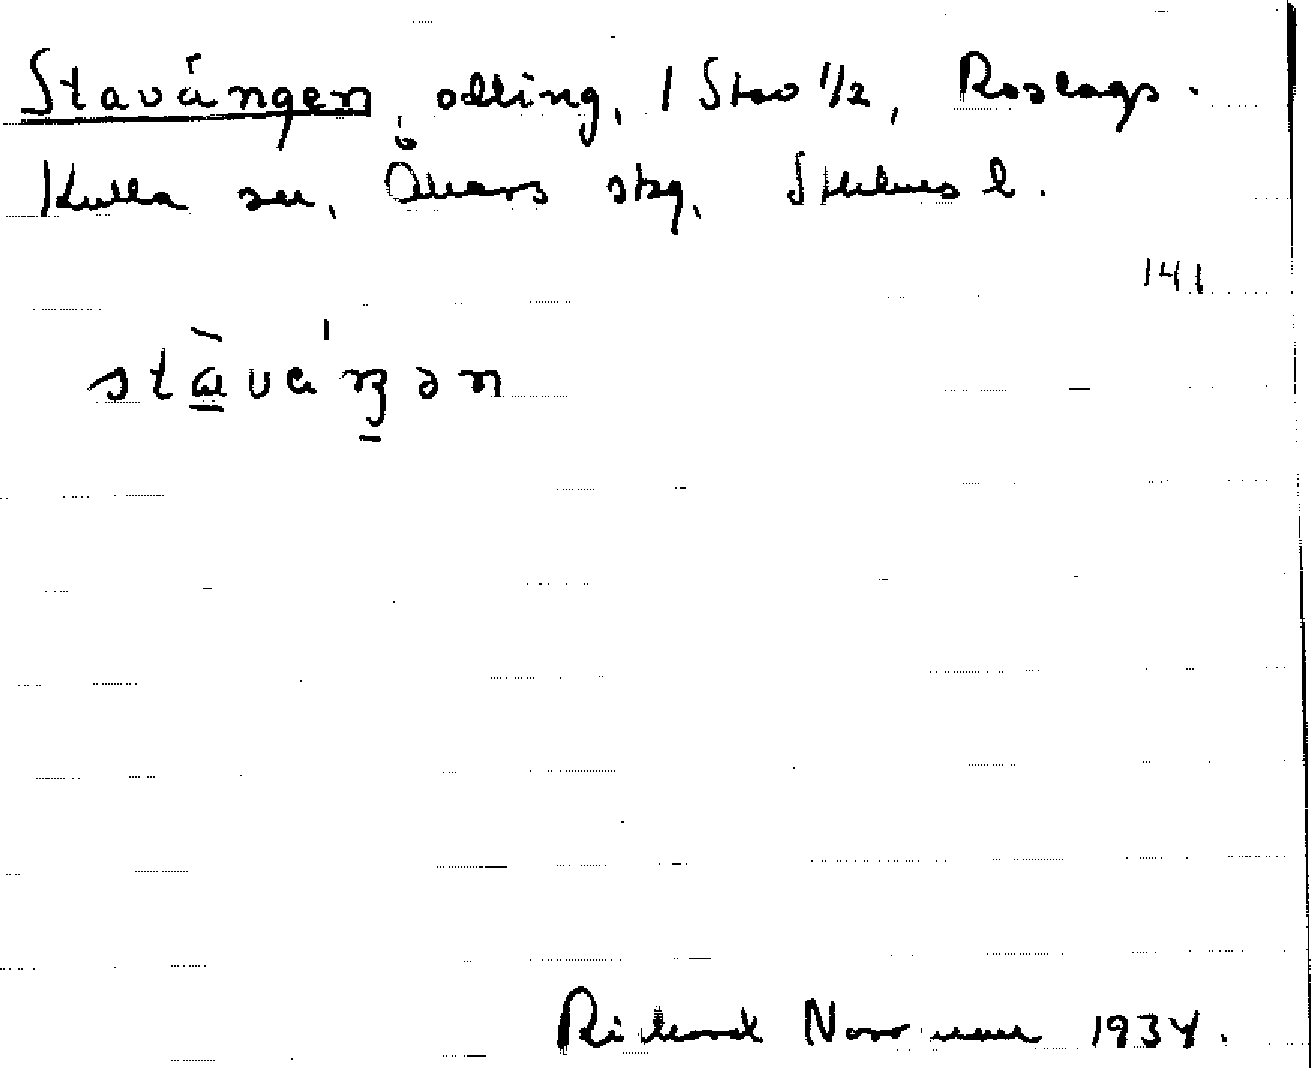 Stavängen, odling, 1 Stav 1/2, Roslags-
Kulla sn, Åkers skg, Sthlms l.
141
stàväŋən
Rikard Norrman 1934.